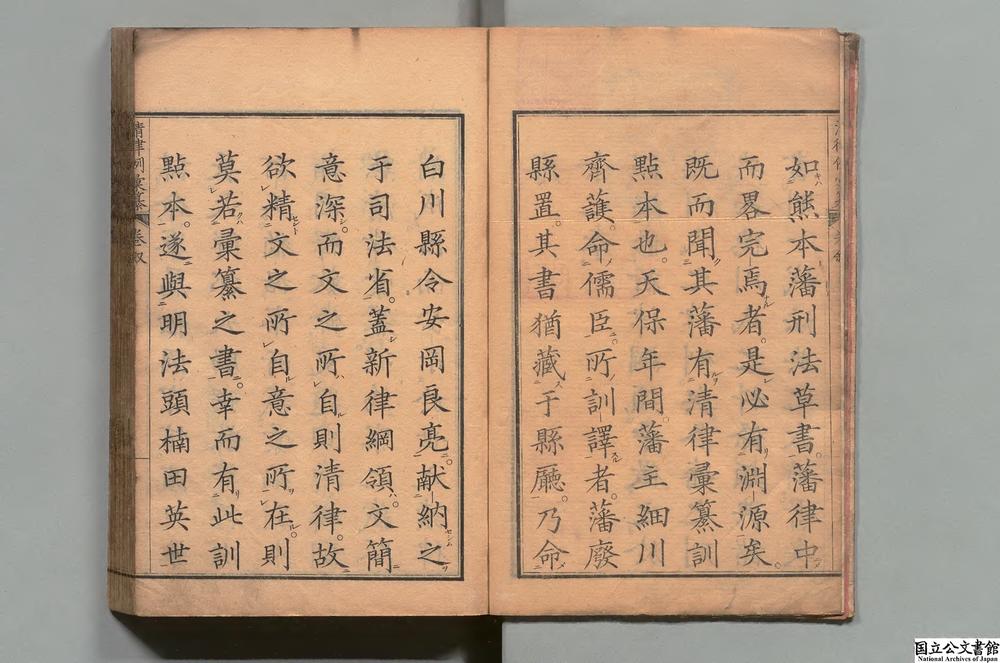 如熊本藩刑法草書。藩律中
而畧完焉者。是必有淵源矣。
既而聞其藩有清律彙纂訓
點本也。天保年間。藩主細川
齊護。命儒臣所訓譯者。藩廢
縣置。其書猶藏于縣廳。乃命
白川縣令安岡良亮。献納之
于司法省。蓋新律綱領。文簡
意深。而文之所自則清律。故
欲精文之所自意之所在。則
莫若彙纂之書。幸而有此訓
點本。遂與明法頭楠田英世
清律例彙纂
国立公文書館
National Archives of Japan